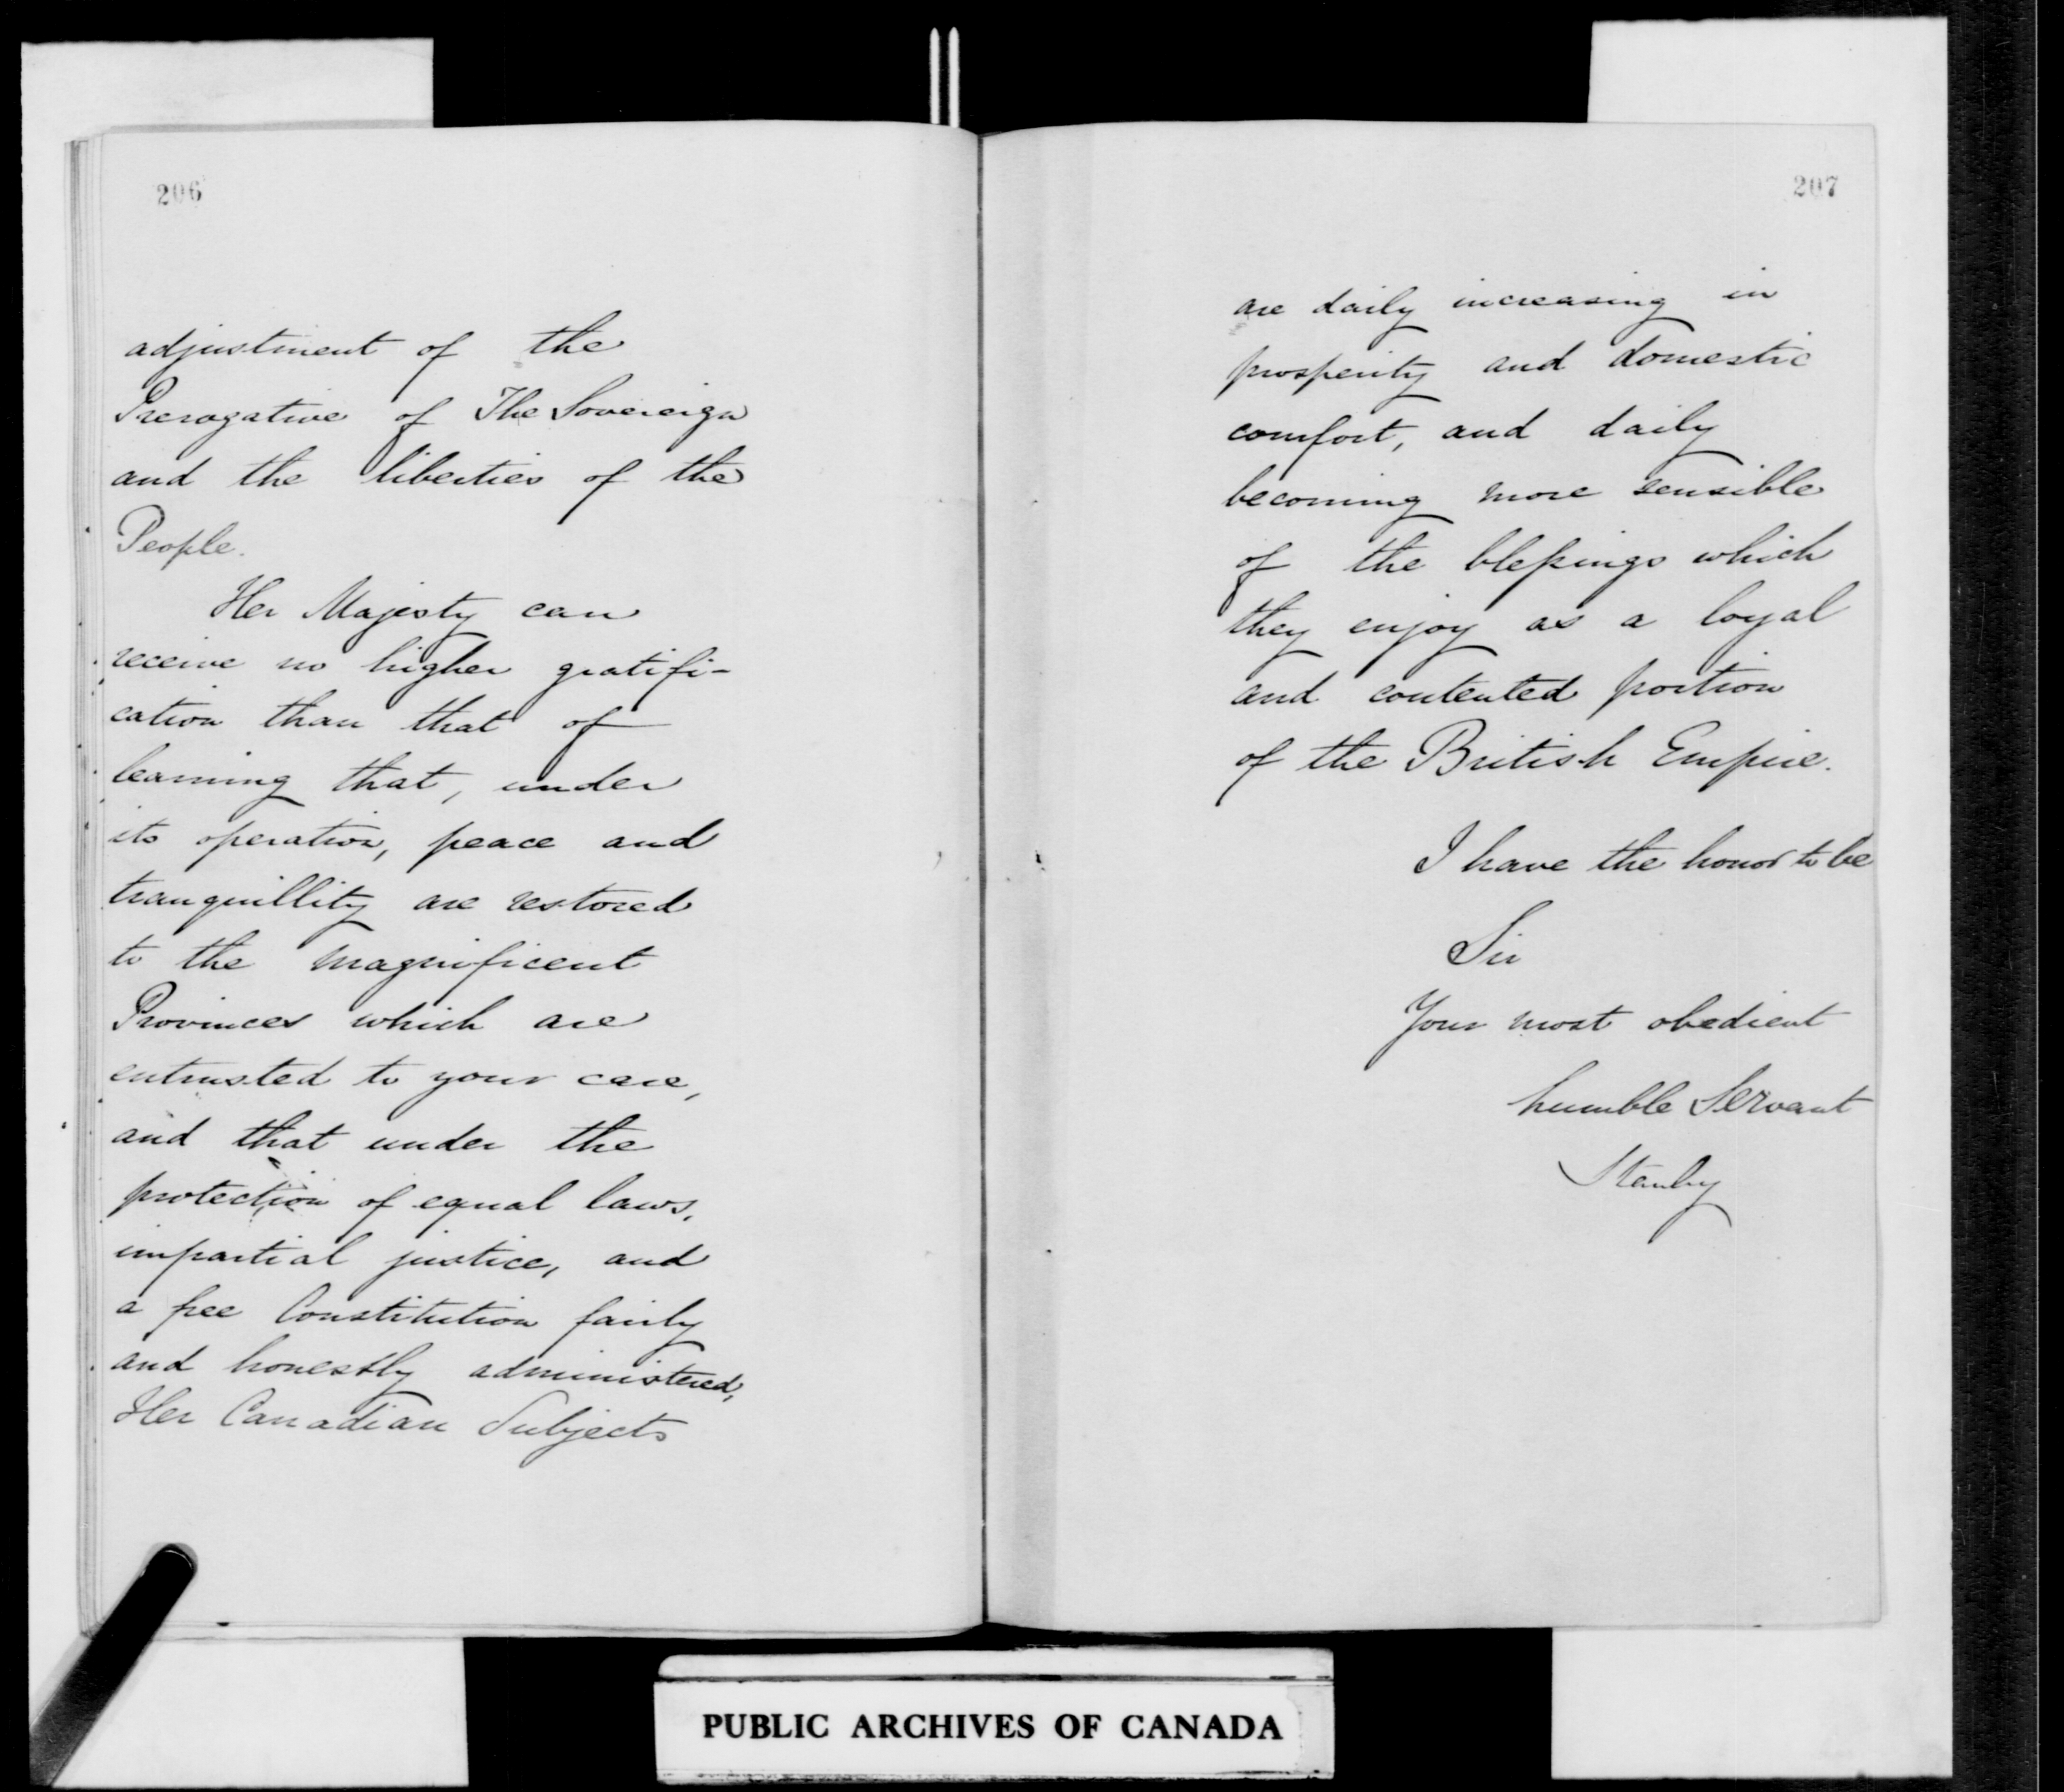 206
adjustment of the
Prerogative of The Sovereign
and the liberties of the
People.
Her Majesty can
receive no higher gratifi-
cation than that of
learning that, under
its operation, peace and
tranquillity are restored
to the magnificent
Provinces which are
entrusted to your care,
and that under the
protection of equal laws,
impartial justice, and
a free Constitution fairly
and honestly administered,
Her Canadian Subjects
207
are daily increasing in
prosperity and domestic
comfort, and daily
becoming more sensible
of the blessings which
they enjoy as a loyal
and contented portion
of the British Empire.
I have the honor to be
Sir
Your most obedient
humble Servant
Stanley
PUBLIC ARCHIVES OF CANADA